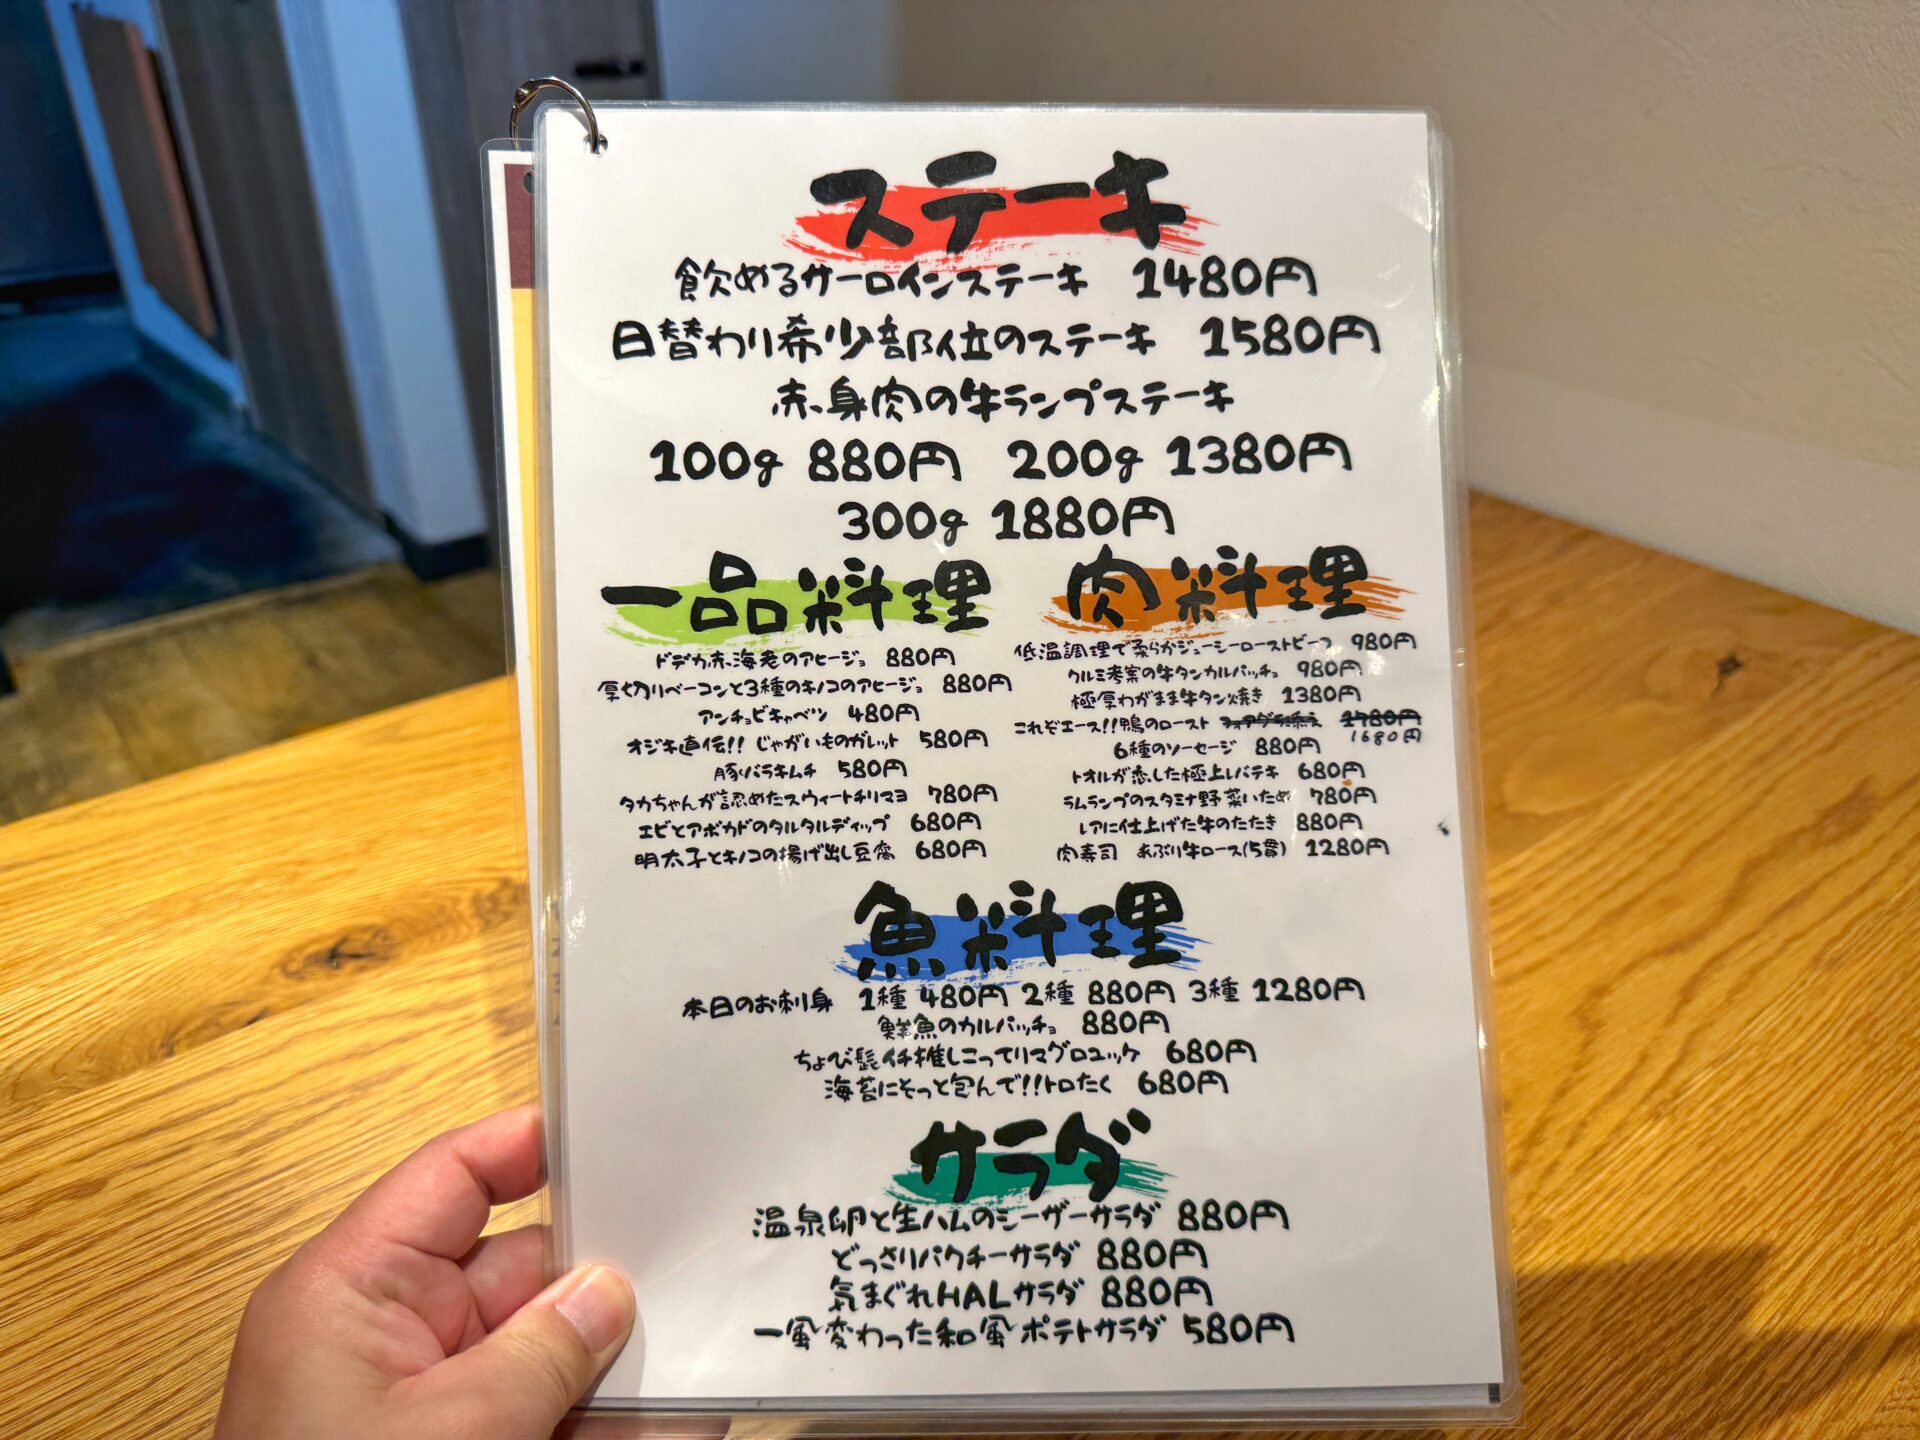 ステーキ
飲めるサーロインステーキ 1480円
日替わり希少部位のステーキ 1580円
赤身肉の牛ランプステーキ
100g 880円 200g 1380円
300g 1880円
一品料理
ドデカ赤海老のアヒージョ 880円
厚切りベーコンと3種のキノコのアヒージョ 880円
アンチョビキャベツ 480円
オジキ直伝!! じゃがいものガレット 580円
豚バラキムチ 580円
タカちゃんが認めたスウィートチリマヨ 780円
エビとアボカドのタルタルディップ 680円
明太子とキノコの揚げ出し豆腐 680円
肉料理
低温調理で柔らかジューシーローストビーフ 980円
クルミ考案の牛タンカルパッチョ 980円
極厚わがまま牛タン焼き 1380円
これぞエース!!鴨のロースト フォアグラ添え 1780円
1680円
6種のソーセージ 880円
トオルが恋した極上レバテキ 680円
ラムランプのスタミナ野菜いため 780円
レアに仕上げた牛のたたき 880円
肉寿司 あぶり牛ロース(5貫) 1280円
魚料理
本日のお刺身 1種 480円 2種 880円 3種 1280円
鮮魚のカルパッチョ 880円
ちょび髭イチ推しこってりマグロユッケ 680円
海苔にそっと包んで!!トロたく 680円
サラダ
温泉卵と生ハムのシーザーサラダ 880円
どっさりパクチーサラダ 880円
気まぐれHALサラダ 880円
一風変わった和風ポテトサラダ 580円